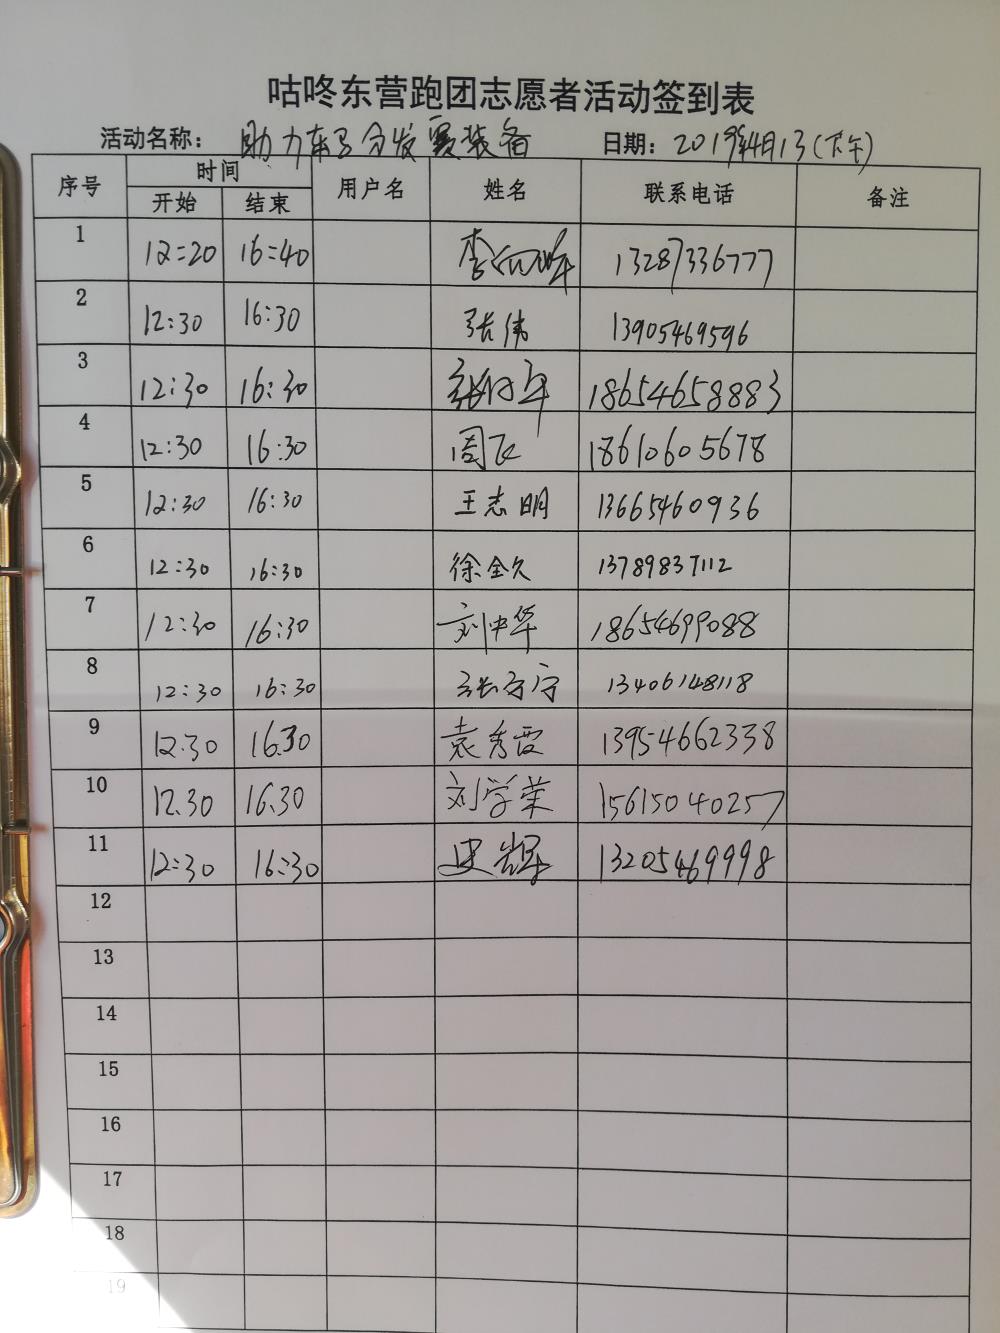 咕咚东营跑团志愿者活动签到表
活动名称: 助力东马分发赛装备 日期: 2019年4月13(下午)
序号 时间 用户名 姓名 联系电话 备注
开始 结束
1 12:20 16:40 李 13287336777
2 12:30 16:30 张伟 13905469596
3 12:30 16:30 18654658883
4 12:30 16:30 周飞 18610605678
5 12:30 16:30 王志明 13665460936
6 12:30 16:30 徐全久 13789837112
7 12:30 16:30 刘中华 18654699088
8 12:30 16:30 张 宁 13406148118
9 12.30 16.30 袁秀霞 13954662338
10 12.30 16.30 刘学荣 15615040257
11 12:30 16:30 史辉 13205469998
12
13
14
15
16
17
18
19